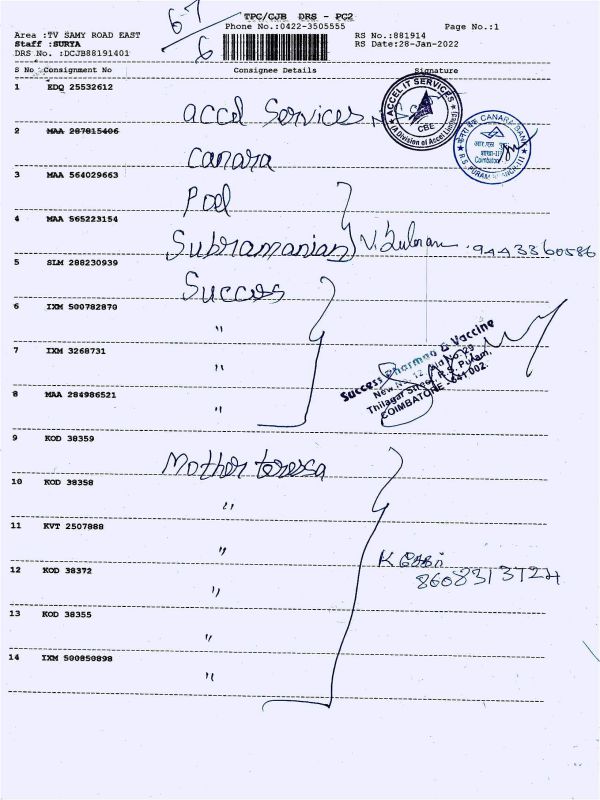 TPC/CJB DRS - PC2
Phone No.:0422-3505555
Page No.:1
Area :TV SAMY ROAD EAST
Staff :SURYA
DRS No. :DCJB88191401
RS No.:881914
RS Date:28-Jan-2022
67/6
S No Consignment No Consignee Details Signature
1 EDQ 25532612
accel Services
ACCEL IT SERVICES
(A Division of Accel Limited)
CBE
2 MAA 287815406
Canara
CANARA BANK
Coimbatore
3 MAA 564029663
Pool
4 MAA 565223154
Subramanian 9443360586
5 SLM 288230939
Success
6 IXM 500782870
"
7 IXM 3268731
"
8 MAA 284986521
"
Success Pharma & Vaccine
New No. 12, Old No. 29
Thilagar Street, R.S. Puram,
COIMBATORE - 641 002.
9 KOD 38359
Mother teresa
10 KOD 38358
"
11 KVT 2507888
"
12 KOD 38372
"
8608313724
13 KOD 38355
"
14 IXM 500850898
"